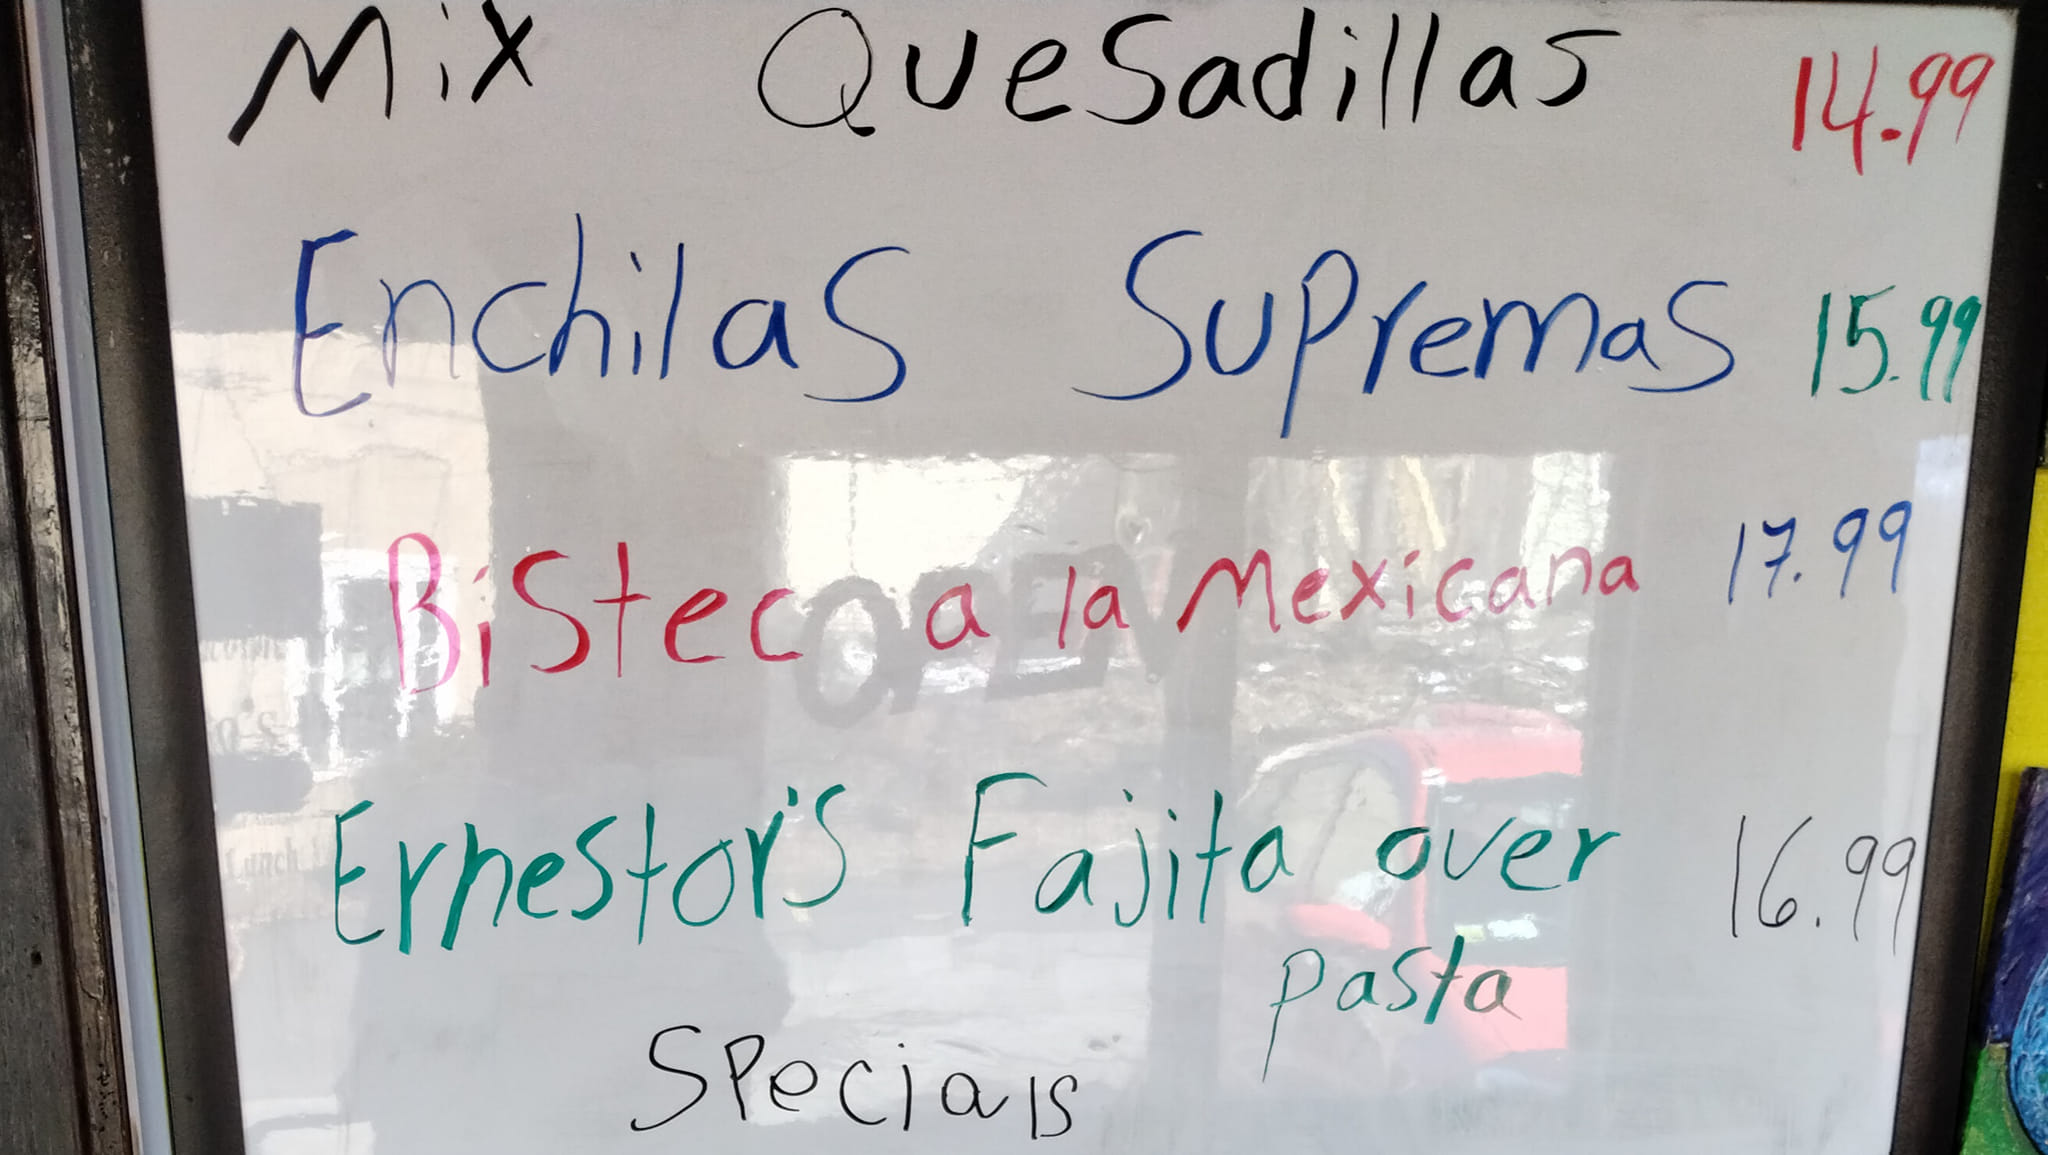 Mix Quesadillas 14.99
Enchilas Supremas 15.99
Bistec a la Mexicana 17.99
Ernestor's Fajita over 16.99
pasta
Specials
OPEN
Lunch